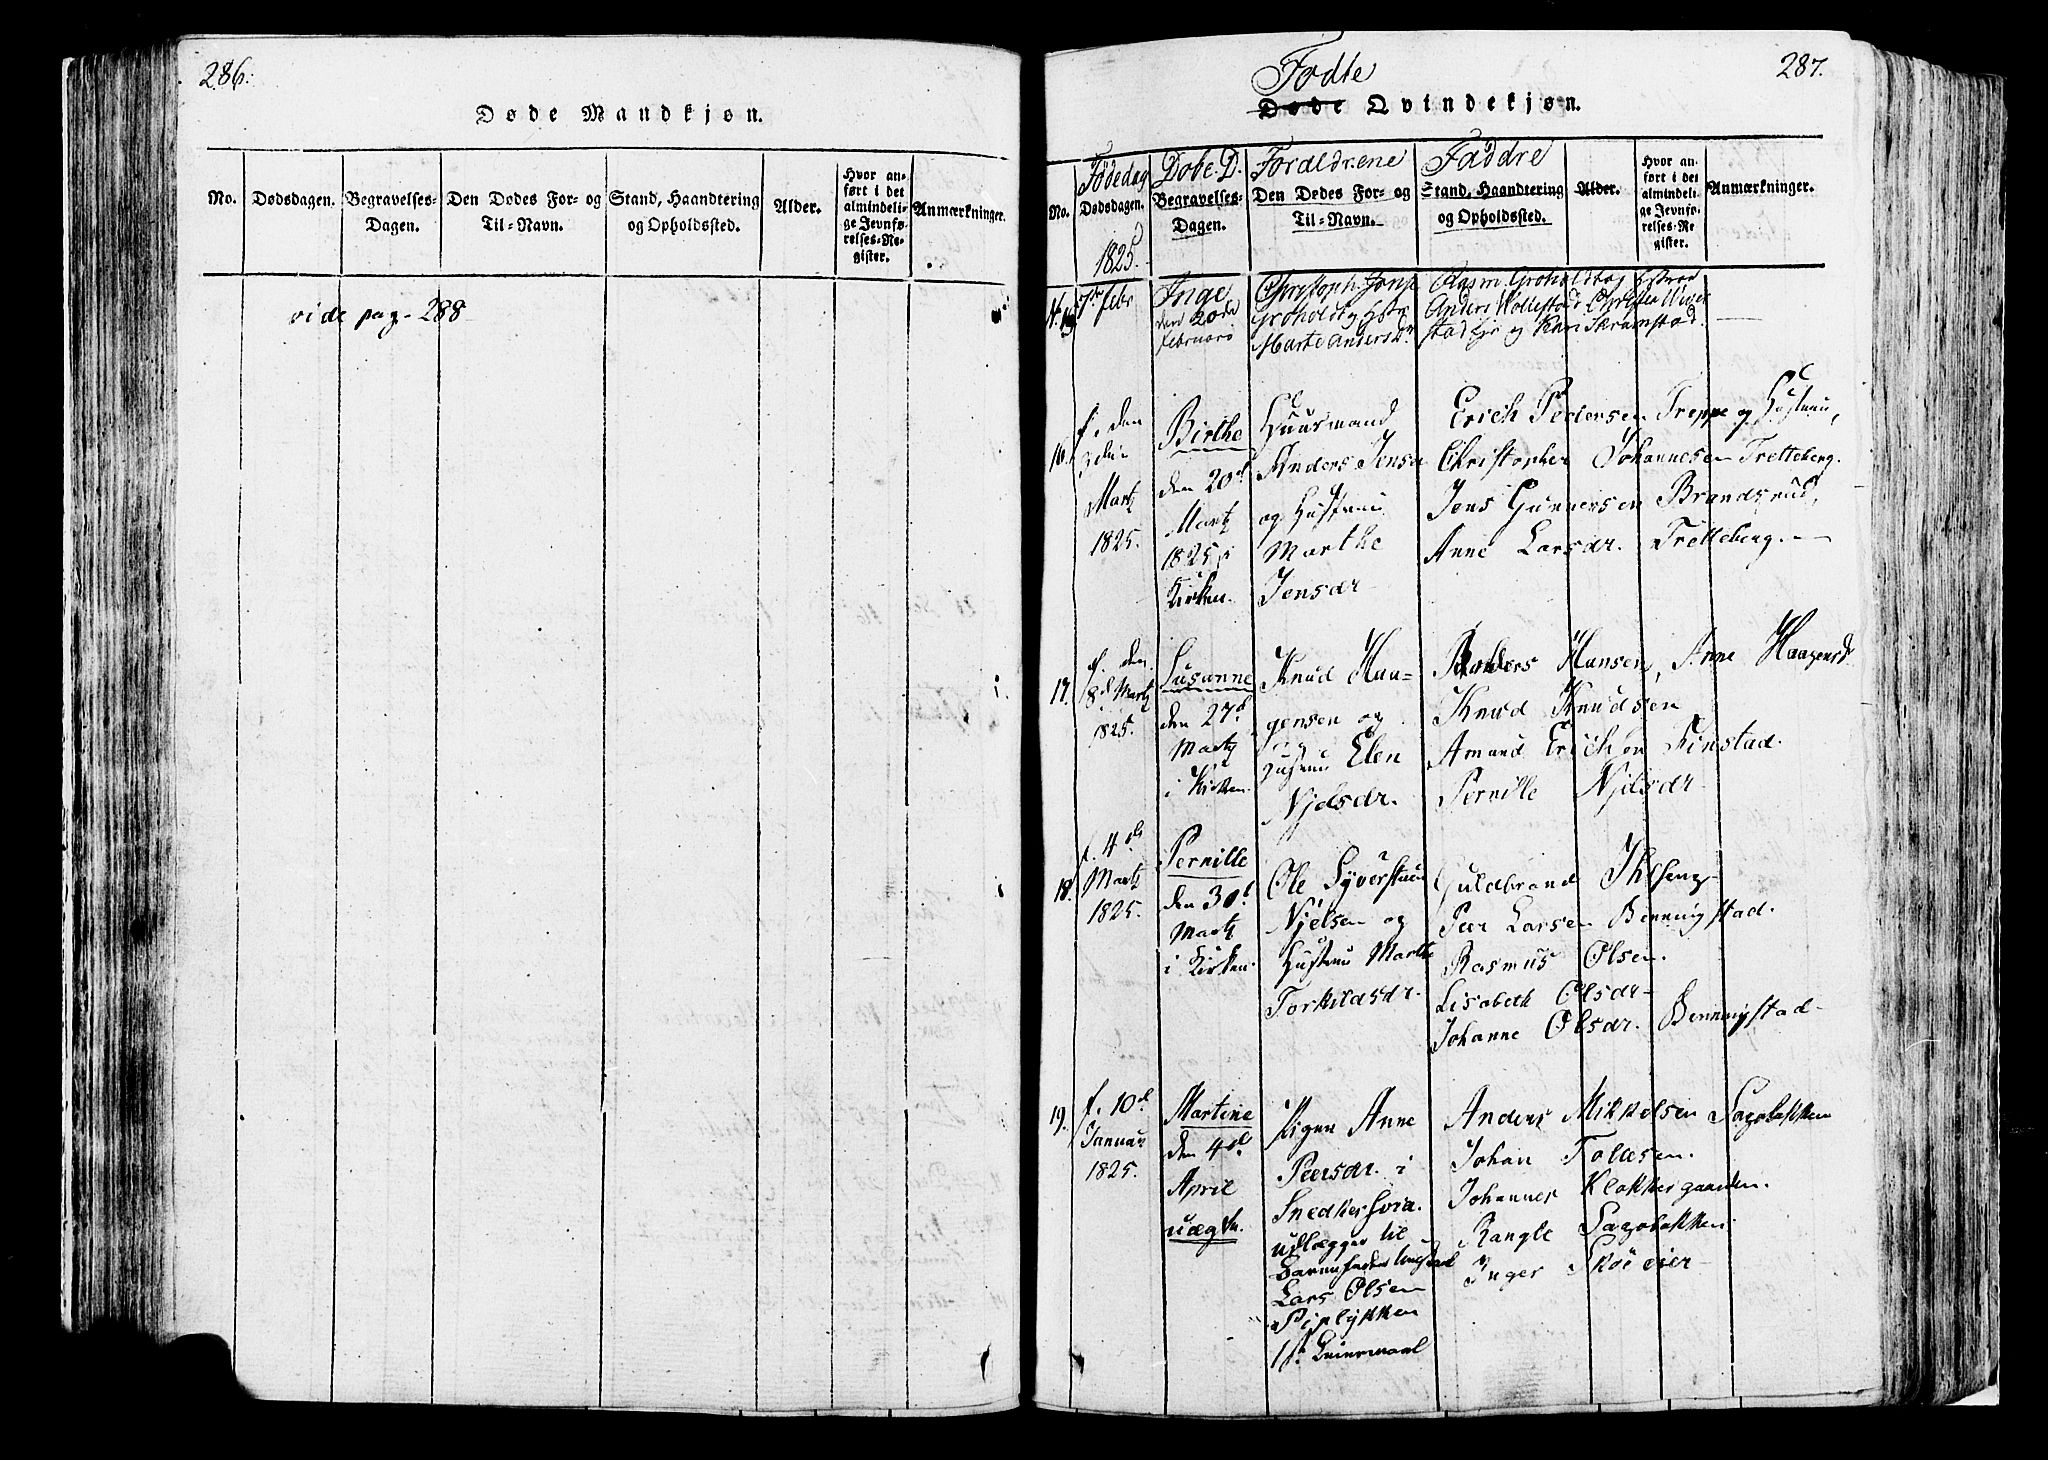 286.
Døde Mandkjøn.
No.
Dødsdagen.
Begravelses-
Dagen.
Den Dødes For- og
Til-Navn.
Stand, Haandtering
og Opholdssted.
Alder.
Hvor an-
ført i det
almindeli-
ge Jevnfø-
relses-Re-
gister.
Anmærkninger.
vide pag. 288
287.
Fødte
Døde Qvindekjøn.
No.
Fødedag
Dødsdagen.
1825.
Døbe. D.
Begravelses-
Dagen.
Forældrene
Den Dødes For- og
Til-Navn.
Faddre
Stand, Haandtering
og Opholdssted.
Alder.
Hvor an-
ført i det
almindeli-
ge Jevnfø-
relses-Re-
gister.
Anmærkninger.
15
7de Febr
Inge
den 20de
Februari
Christoph
Marte Anders Dr
og Kari Skramstad
16.
f. den
Martz
1825.
Birthe
den 20d
Martz
1825 i
Kirken.
Huusmand
Anders Jensen
og Hustrue
Marthe
Jensdr
Erich Pedersen Treppe og Hustrue,
Christopher Johannesen Tretteberg.
Jens Gunnersen Brandsrud,
Anne Larsdr. Tretteberg.
17.
f. den
8d Martz
1825.
Susanne
den 27d
Martz
i Kirken.
Knud Haa-
gensen og
Hustrue Elen
Njelsdr.
Hansen, Anne Haagensd.
Knud Knudsen
Amund Erichsen Finstad.
Pernille Njelsdr
18.
f. 4de
Martz
1825.
Pernille
den 30d
Martz
i Kirken.
Ole Syverstuen
Njelsen og
Hustrue Marthe
Torkildsdr.
Guldbrand Ihlseng
Peer Larsen Benningstad.
Rasmus Olsen.
Lisabeth Olsdr
Johanne Olsdr. Benningstad
19.
f. 10d
Januar
1825.
Martine
den 4d
April
uægte.
Pigen Anne
Peersdr. i
Snedkersvea.
udlægger til
Barnefader
Lars Olsen
Piplykken
1ste Leiermaal
Anders Mikkelsen Sagobakken
Johan Tollesen.
Johannes Klokkergaarden.
Rangle Sagobakken.
Inger Skoieier